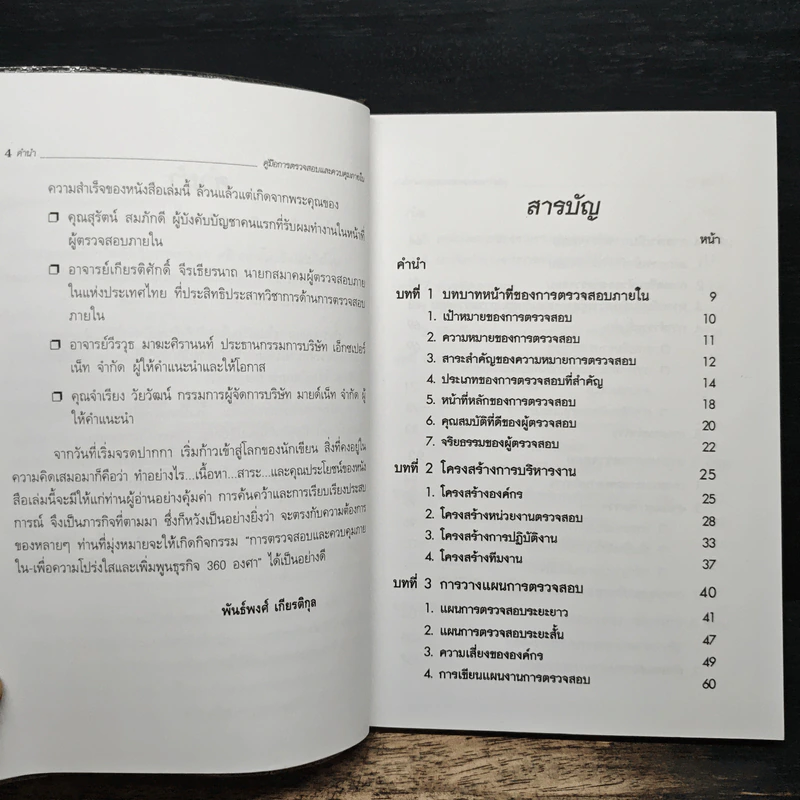 4 คำนำ
คู่มือการตรวจสอบและควบคุมภายใน
ความสำเร็จของหนังสือเล่มนี้ ล้วนแล้วแต่เกิดจากพระคุณของ
❒ คุณสุรัตน์ สมภักดี ผู้บังคับบัญชาคนแรกที่รับผมทำงานในหน้าที่
ผู้ตรวจสอบภายใน
❒ อาจารย์เกียรติศักดิ์ จีรเธียรนาถ นายกสมาคมผู้ตรวจสอบภาย
ในแห่งประเทศไทย ที่ประสิทธิประสาทวิชาการด้านการตรวจสอบ
ภายใน
❒ อาจารย์วีรวุธ มาฆะศิรานนท์ ประธานกรรมการบริษัท เอ็กซเปอร์
เน็ท จำกัด ผู้ให้คำแนะนำและให้โอกาส
❒ คุณจำเรียง วัยวัฒน์ กรรมการผู้จัดการบริษัท มายด์เน็ท จำกัด ผู้
ให้คำแนะนำ
จากวันที่เริ่มจรดปากกา เริ่มก้าวเข้าสู่โลกของนักเขียน สิ่งที่คงอยู่ใน
ความคิดเสมอมาก็คือว่า ทำอย่างไร...เนื้อหา...สาระ...และคุณประโยชน์ของหนัง
สือเล่มนี้จะมีให้แก่ท่านผู้อ่านอย่างคุ้มค่า การค้นคว้าและการเรียบเรียงประสบ
การณ์ จึงเป็นภารกิจที่ตามมา ซึ่งก็หวังเป็นอย่างยิ่งว่า จะตรงกับความต้องการ
ของหลายๆ ท่านที่มุ่งหมายจะให้เกิดกิจกรรม "การตรวจสอบและควบคุมภาย
ใน-เพื่อความโปร่งใสและเพิ่มพูนธุรกิจ 360 องศา" ได้เป็นอย่างดี
พันธ์พงศ์ เกียรติกุล
สารบัญ
หน้า
คำนำ
บทที่ 1 บทบาทหน้าที่ของการตรวจสอบภายใน 9
1. เป้าหมายของการตรวจสอบ 10
2. ความหมายของการตรวจสอบ 11
3. สาระสำคัญของความหมายการตรวจสอบ 12
4. ประเภทของการตรวจสอบที่สำคัญ 14
5. หน้าที่หลักของการตรวจสอบ 18
6. คุณสมบัติที่ดีของผู้ตรวจสอบ 20
7. จริยธรรมของผู้ตรวจสอบ 22
บทที่ 2 โครงสร้างการบริหารงาน 25
1. โครงสร้างองค์กร 25
2. โครงสร้างหน่วยงานตรวจสอบ 28
3. โครงสร้างการปฏิบัติงาน 33
4. โครงสร้างทีมงาน 37
บทที่ 3 การวางแผนการตรวจสอบ 40
1. แผนการตรวจสอบระยะยาว 41
2. แผนการตรวจสอบระยะสั้น 47
3. ความเสี่ยงขององค์กร 49
4. การเขียนแผนงานการตรวจสอบ 60